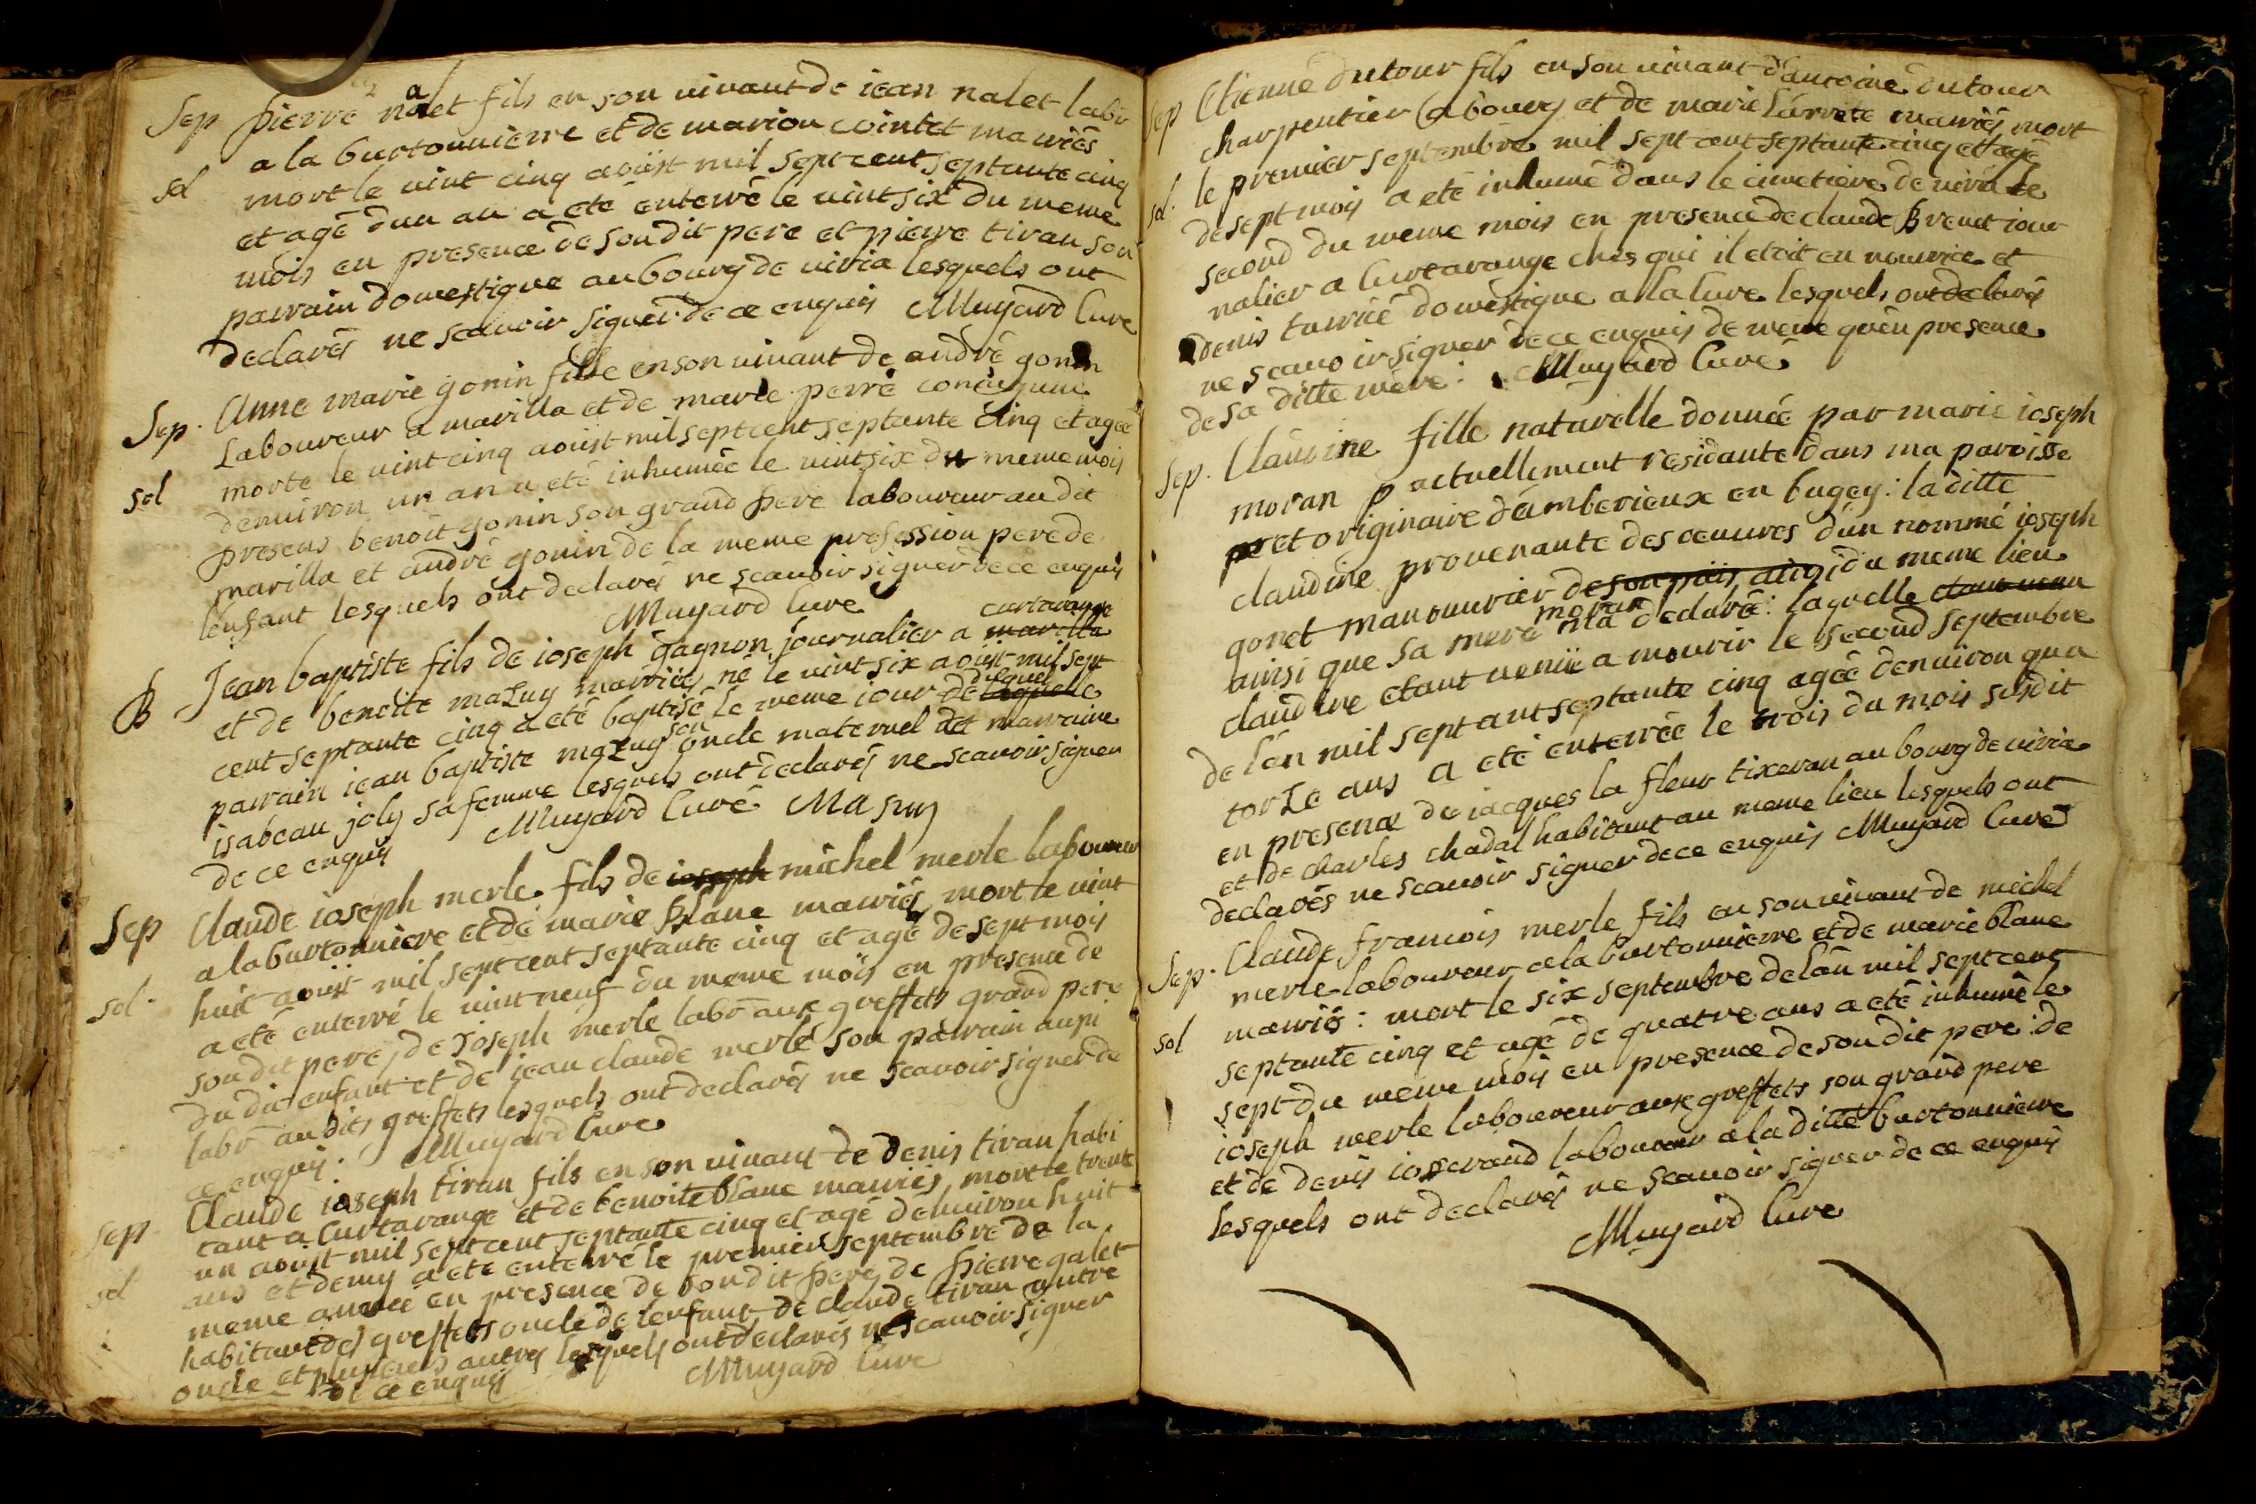 Sep pierre nalet fils en son vivant de iean nalet labr
a la burtonnierre et de marion cointet mariés
sol mort le vint cinq aoüst mil sept cent septante cinq
et agé dun an a eté enterré le vint six du meme
mois en presence de son dit pere et pierre tiran son
parrain domestique au bourg de viria lesquels ont
declarés ne scavoir signer de ce enquis Muyard Curé
Sep. Anne marie gonin fille en son vivant de andré gonin
Laboureur a marilla et de marie perré
sol morte le vint cinq aoust mil sept cent septante Cinq et agée
denviron un an a eté inhumée le vint six du meme mois
presens benoit gonin son grand pere laboureur au dit
marilla et andré gonin de la meme profession pere de
lenfant lesquels ont declarés ne scavoir signer de ce enquis
Muyard Curé
curtarange
B Jean baptiste fils de ioseph gagnon journalier a marilla
et de benoite mazuy marriés né le vint six aoust mil sept
cent septante cinq a eté baptisé le meme iour duquel de laquelle
parrain iean baptiste mazuy son oncle maternel et marraine
isabeau joly sa femme lesquels ont declarés ne scavoir signer
de ce enquis Muyard Curé Masuy
Sep Claude ioseph merle fils de ioseph michel merle laboureur
a la burtonniere et de marie Blanc marriés mort le vint
sol. huit aoust mil sept cent septante cinq et agé de sept mois
a eté enterré le vint neuf du meme mois en presence de
son dit pere, de Joseph merle labr aux greffets grand pere
du dit enfant et de iean claude merle son parrain aussi
labr audits greffets lesquels ont declarés ne scavoir signer de
ce enquis. Muyard Curé
Sep. Claude ioseph tiran fils en son vivant de Denis tiran habi
tant a Curtarange et de benoite blanc mariés mort le trente
sol un aoust mil sept cent septante cinq et agé denviron huit
ans et demy a eté enterré le premier septembre de la
meme année en presence de son dit pere, de pierre galet
habitant des greffets oncle de lenfant, de claude tiran autre
oncle et plusieurs autres lesquels ont declarés ne scavoir signer
de ce enquis Muyard Curé
Sep Etienne dutour fils en son vivant d'antoine dutour
charpentier a bourg et de marie mariés mort
sol. le premier septembre mil sept cent septante cinq et agé
de sept mois a eté inhumé dans le cimetiere de viria le
second du meme mois en presence de claude Brevet iour
nalier a Curtarange chés qui il etoit en nourrice et
denis domestique a la Cure lesquels ont declarés
ne scavoir signer de ce enquis de meme qu'en presence
de sa ditte mère. Muyard Curé
Sep. Claudine fille naturelle donnée par marie ioseph
moran p actuellement residante dans ma paroisse
et originaire d'amberieux en bugey: la ditte
claudine provenante des oeuvres d'un nommé ioseph
gonet manouvrier de son païs, ains, du meme lieu
ainsi que sa mere moran m'a declaré: laquelle
claudine etant venüe a mourir le second septembre
de l'an mil sept cent septante cinq agée denviron qua
torze ans a eté enterrée le trois du mois susdit
en presence de iacques la fleur tixeran au bourg de viria
et de charles chadal habitant au meme lieu lesquels ont
declarés ne scavoir signer de ce enquis Muyard Curé
Sep. Claude francois merle fils en son vivant de michel
merle laboureur a la burtonnierre et de marie blanc
sol marriés: mort le six septembre de l'an mil sept cent
septante cinq et agé de quatre ans a eté inhumé le
sept du meme mois en presence de son dit pere: de
ioseph merle laboureur aux greffets son grand pere
et de denis iosserand laboureur a la ditte burtonnierre
lesquels ont declarés ne scavoir signer de ce enquis
Muyard Curé